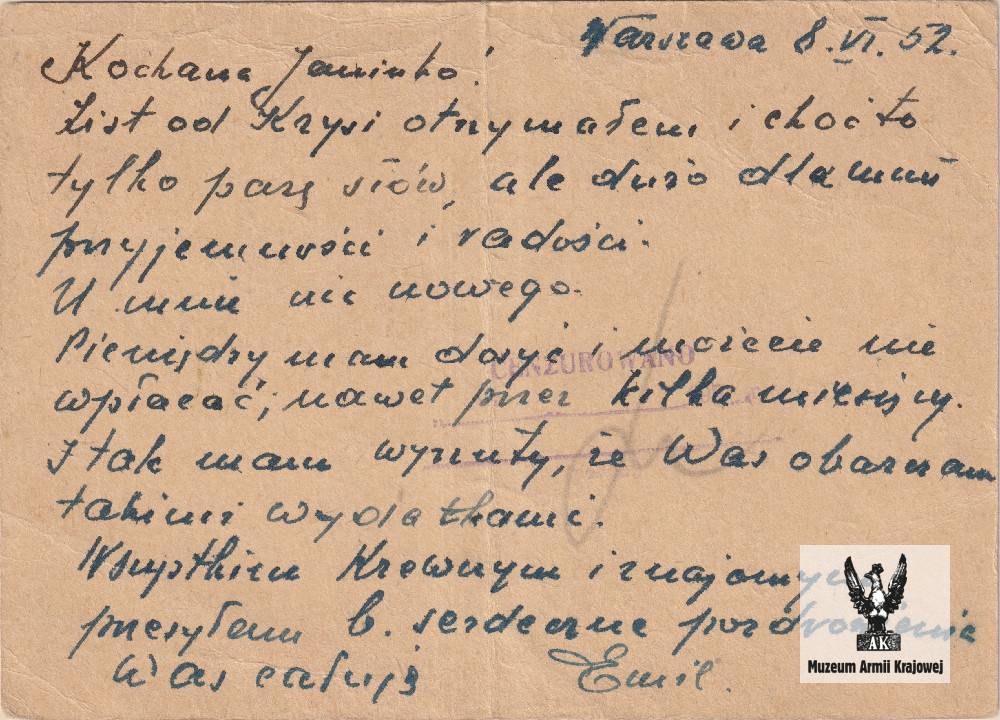 Warszawa 8.VI.52.
Kochana Janinko!
List od Krysi otrzymałem i choć to
tylko parę słów, ale dużo dla mnie
przyjemności i radości.
U mnie nic nowego.
Pieniędzy mam dosyć i możecie nie
CENZUROWANO
wpłacać, nawet przez kilka miesięcy.
I tak mam wyrzuty, że Was obarczam
takimi wydatkami.
Wszystkim Krewnym i znajomym
przesyłam b. serdeczne pozdrowienia
Was całuję Emil.
AK
Muzeum Armii Krajowej